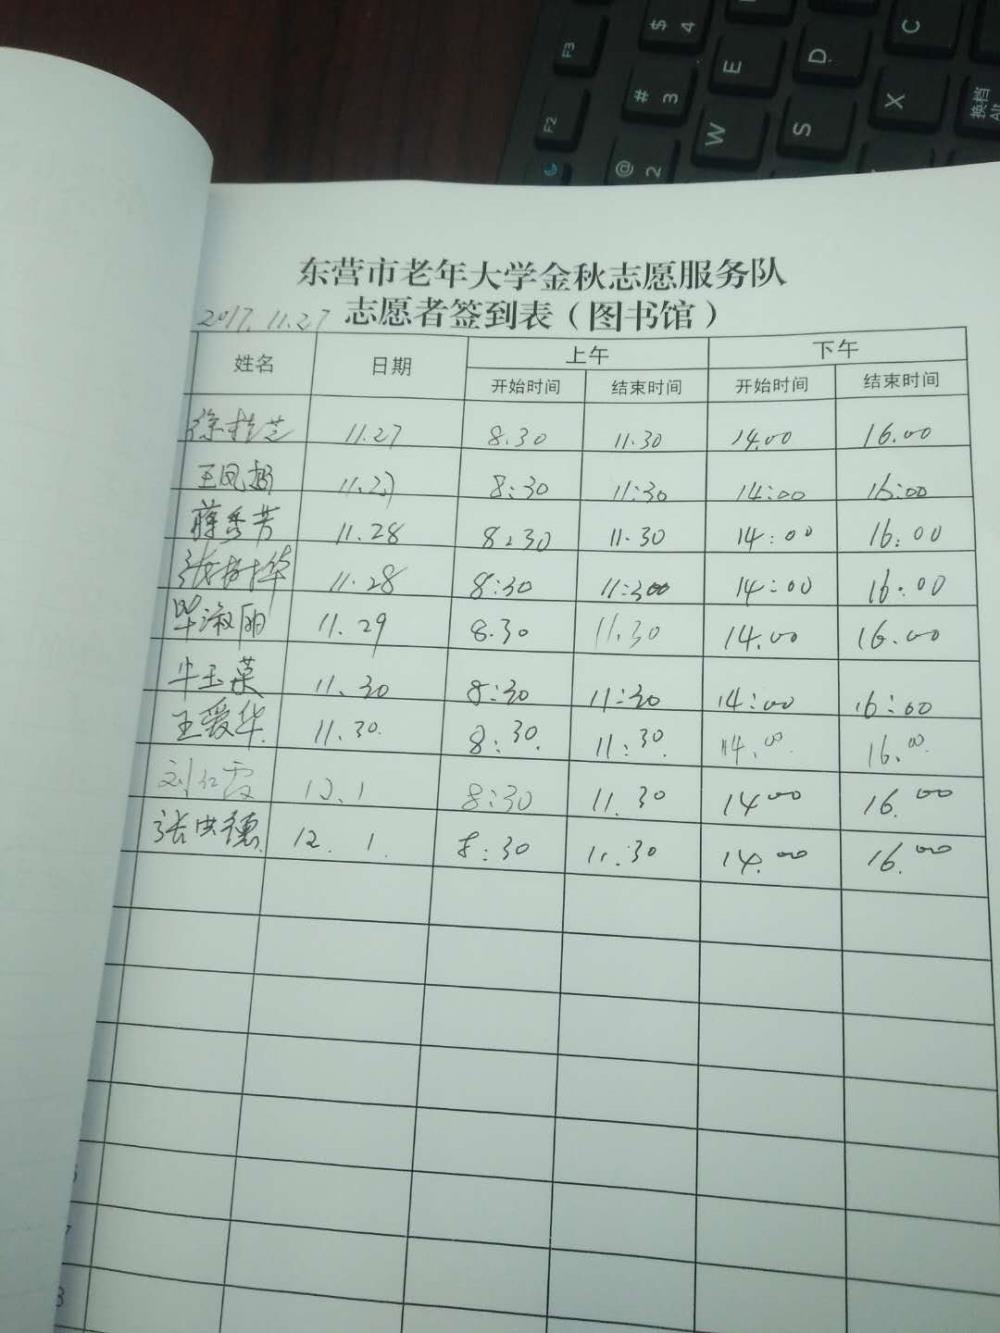 F3
$ 4
C
E
D
F2
# 3
X
换档
Alt
W
S
@ 2
东营市老年大学金秋志愿服务队
2017.11.27 志愿者签到表（图书馆）
姓名 日期 上午 下午
开始时间 结束时间 开始时间 结束时间
徐桂芝 11.27 8.30 11.30 14.00 16.00
王凤 11.27 8:30 11:30 14:00 16:00
蒋秀芳 11.28 8:30 11.30 14:00 16:00
张树华 11.28 8:30 11:300 14:00 16:00
毕淑丽 11.29 8.30 11.30 14.00 16.00
牛玉菓 11.30 8:30 11:30 14:00 16:00
王爱华 11.30. 8:30. 11:30. 14.00. 16.00.
刘仁霞 12.1 8:30 11.30 14 00 16.00
张洪德 12.1. 8:30 11.30 14.00 16.00